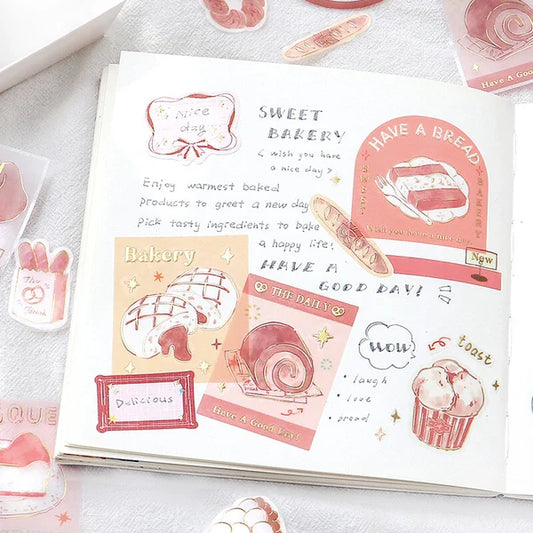 Nice
day
SWEET
BAKERY
< wish you have
a nice day >
Enjoy warmest baked
products to greet a new day
Pick tasty ingredients to bake
a happy life!
HAVE A
GOOD DAY!
HAVE A BREAD
BAKERY
Wish you have a nice day
Now
Bakery
THE DAILY
Have A Good Day!
Delicious
WOW
• laugh
• love
• proud
toast
Have A Good
The
SQUE